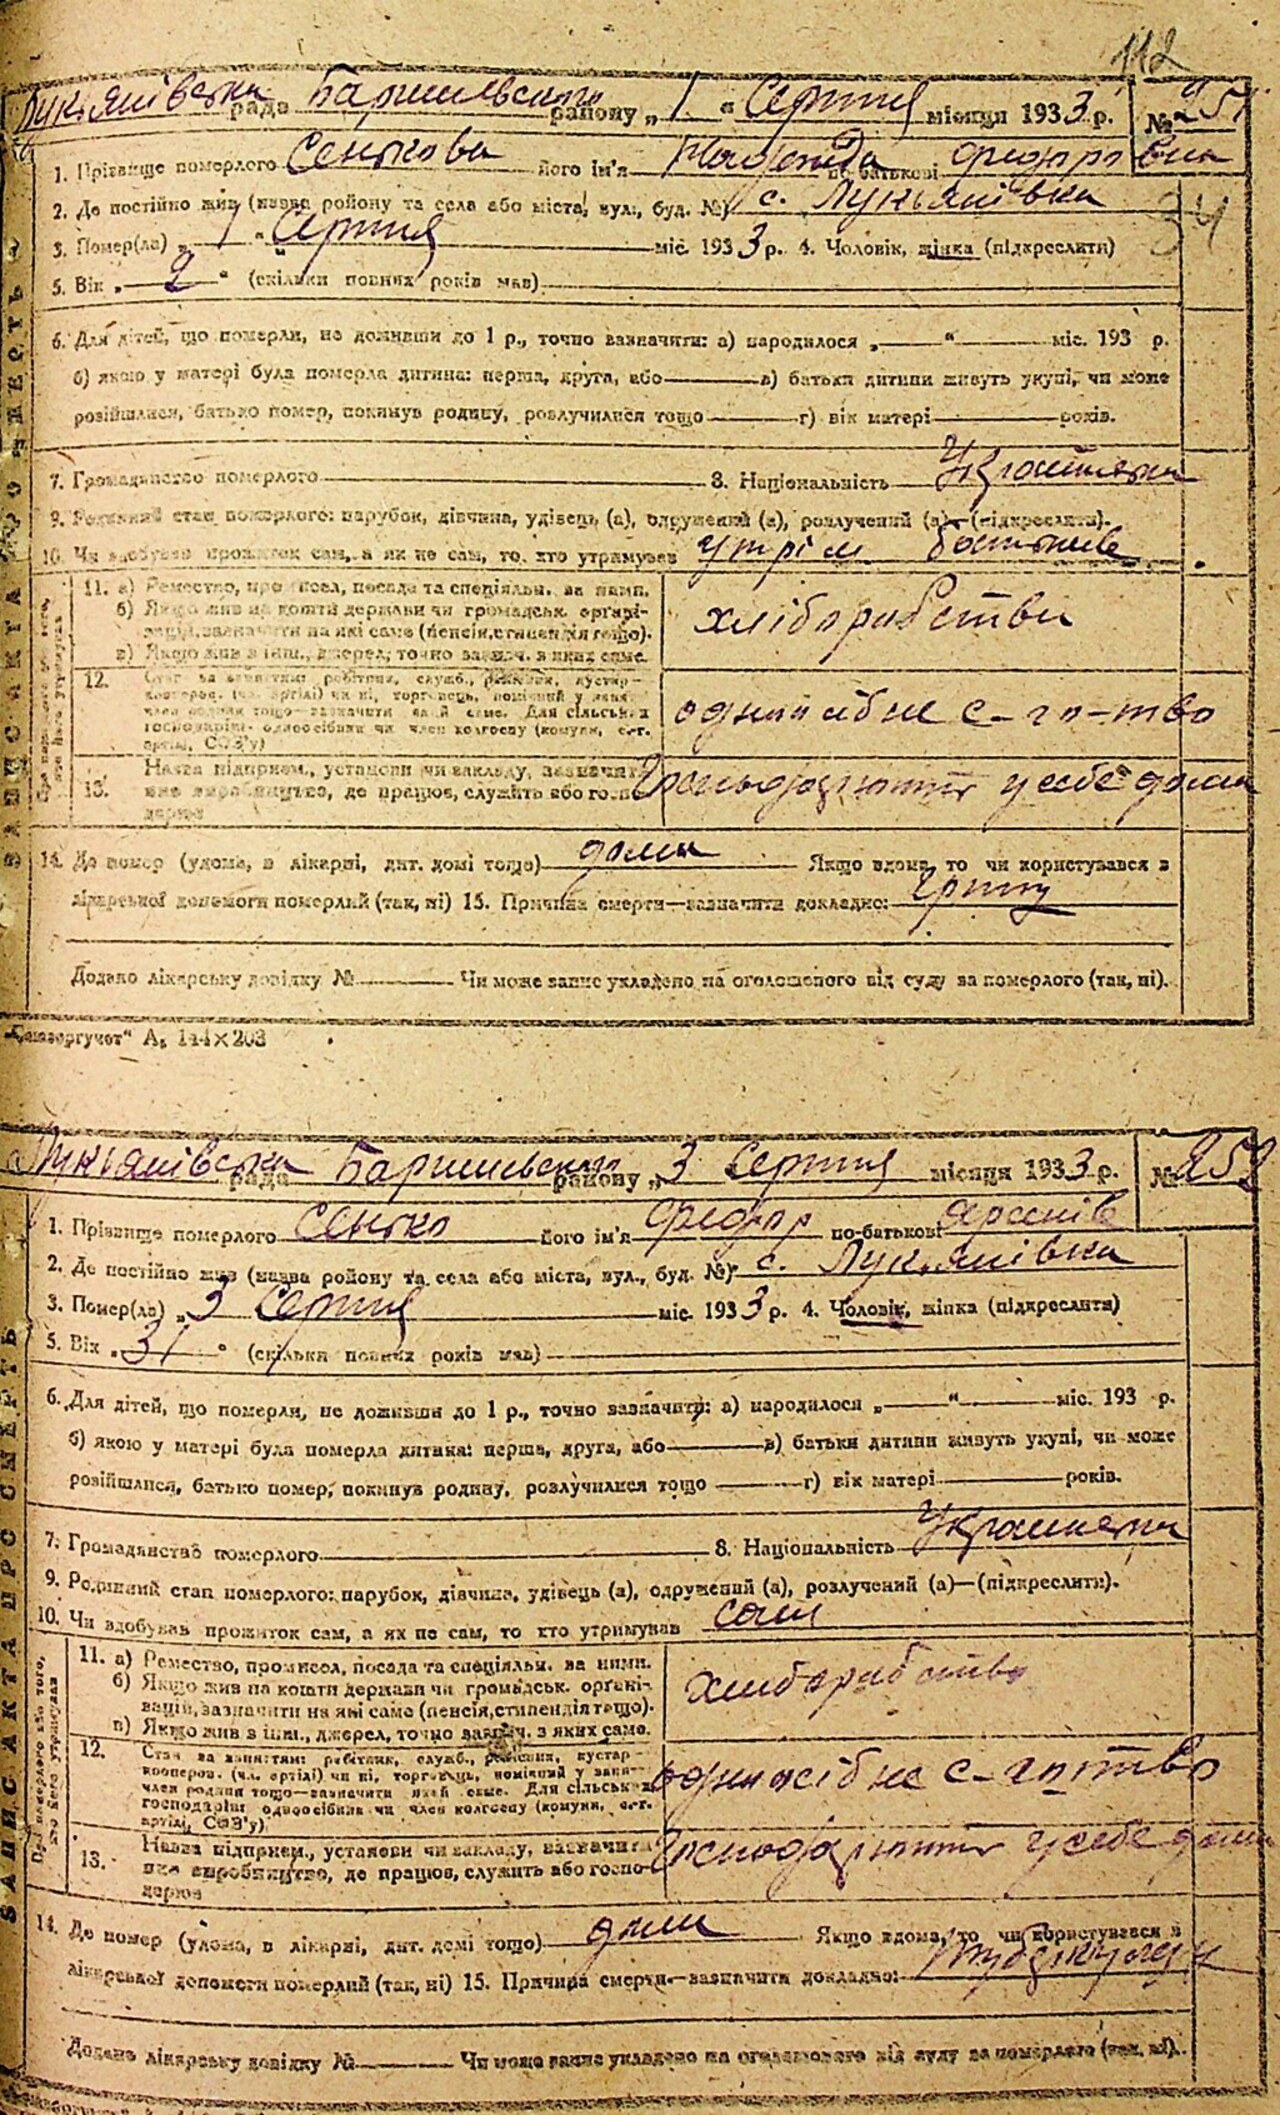 112
Лукьянівська рада Баришевського району „1" Серпня місяця 1933 р. № 251
1. Прізвище померлого Сенькова його ім'я по батькові Федоровна
2. Де постійно жив (назва ройону та села або міста, вул., буд. №) с. Лукьянівка
34
3. Помер(ла) „1" Серпня міс. 1933 р. 4. Чоловік, жінка (підкреслити)
5. Вік „2" (скільки повних років мав)
6. Для дітей, що померли, не доживши до 1 р., точно зазначити: а) народилося „—" міс. 193 р.
б) якою у матері була померла дитина: перша, друга, або — в) батьки дитини живуть укупі, чи може
розійшлися, батько помер, покинув родину, розлучилися тощо — г) вік матері — років.
7. Громадянство померлого — 8. Національність Украинська
9. Родинний стан померлого: парубок, дівчина, удівець (а), одружений (а), розлучений (а)—(підкреслити).
10. Чи здобував прожиток сам, а як не сам, то хто утримував батьків
11. а) Ремество, промисел, посада та спеціяльн. за ними.
б) Якщо жив на кошти держави чи громадськ. органі-
зацій, зазначити на які саме (пенсія, стипендія тощо).
в) Якщо жив з інш., джерел, точно зазнач. з яких саме.
хліборобство
12. Стан за заняттям: робітник, служб., ремісник, кустар-
кооперов. (чл. артілі) чи ні, торговець, помічний у занят.
член родини тощо—зазначити який саме. Для сільських
господарів: одноосібник чи член колгоспу (комуни, с.-г.
артілі, СОЗ'у)
одноосібне с-го-тво
13. Назва підприєм., установи чи закладу, зазначити
яке виробництво, де працює, служить або госпо-
дарює
у себе дома
14. Де помер (удома, в лікарні, дит. домі тощо) дома Якщо вдома, то чи користувався з
лікарської допомоги померлий (так, ні) 15. Причина смерти—зазначити докладно: грипу
Додано лікарську довідку № — Чи може запис укладено на оголошеного від суду за померлого (так, ні).
„Союзоргучот" А₅ 144×203
ЗАПИС АКТА ПРО СМЕРТЬ
Лукьянівська рада Баришевського району „3 Серпня місяця 1933 р. № 252
1. Прізвище померлого Сенько його ім'я Федор по-батькові Арсенів
2. Де постійно жив (назва ройону та села або міста, вул., буд. №) с. Лукьянівка
3. Помер(ла) „3 Серпня міс. 1933 р. 4. Чоловік, жінка (підкреслити)
5. Вік „31" (скільки повних років мав)
6. Для дітей, що померли, не доживши до 1 р., точно зазначити: а) народилося „—" міс. 193 р.
б) якою у матері була померла дитина: перша, друга, або — в) батьки дитини живуть укупі, чи може
розійшлися, батько помер, покинув родину, розлучилися тощо — г) вік матері — років.
7. Громадянство померлого — 8. Національність Украинська
9. Родинний стан померлого: парубок, дівчина, удівець (а), одружений (а), розлучений (а)—(підкреслити).
10. Чи здобував прожиток сам, а як не сам, то хто утримував сам
11. а) Ремество, промисел, посада та спеціяльн. за ними.
б) Якщо жив на кошти держави чи громадськ. органі-
зацій, зазначити на які саме (пенсія, стипендія тощо).
в) Якщо жив з інш., джерел, точно зазнач. з яких саме.
хліборобство
12. Стан за заняттям: робітник, служб., ремісник, кустар-
кооперов. (чл. артілі) чи ні, торговець, помічний у занят.
член родини тощо—зазначити який саме. Для сільських
господарів: одноосібник чи член колгоспу (комуни, с.-г.
артілі, СОЗ'у)
одноосібне с-готво
13. Назва підприєм., установи чи закладу, зазначити
яке виробництво, де працює, служить або госпо-
дарює
у себе дома
14. Де помер (удома, в лікарні, дит. домі тощо) дома Якщо вдома, то чи користувався з
лікарської допомоги померлий (так, ні) 15. Причина смерти—зазначити докладно:
Додано лікарську довідку № — Чи може запис укладено на оголошеного від суду за померлого (так, ні).
ЗАПИС АКТА ПРО СМЕРТЬ